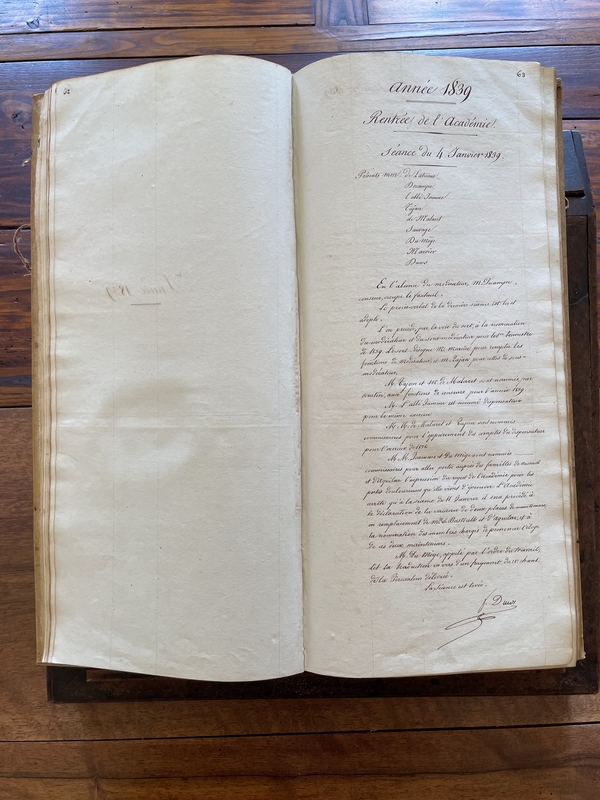 62
63
Année 1839
Rentrée de l'Académie.
Séance du 4 Janvier 1839
Présents MM. de
Ducampe
l'abbé Jammes
Cajan
de Malaret
Sauvage
Du Mège
Ducos
En l'absence du modérateur, M. Ducampe,
censeur, occupe le fauteuil.
Le procès-verbal de la dernière séance est lu et
adopté.
L'on procède, par la voie du sort, à la nomination
du modérateur et du sous-modérateur pour le 1er trimestre
de 1839. Le sort désigne M. pour remplir les
fonctions de modérateur, et M. Cajan pour celles de sous-
modérateur.
M. Cajan et M. de Malaret sont nommés, par
scrutin, aux fonctions de censeurs, pour l'année 1839
M. l'abbé Jammes est nommé dispensateur
pour la même année
M.M. de Malaret et Cajan sont nommés
commissaires pour l'apurement des comptes du dispensateur
pour l'année de
M.M. Jammes et Du Mège sont nommés
commissaires pour aller porter auprès des familles de
et d'Aguilar l'expression des regrets de l'académie pour les
pertes douloureuses qu'elle vient d'éprouver. L'Académie
arrête qu'à la séance du 11 Janvier il sera procédé à
la déclaration de la vacance de deux places de mainteneurs
en remplacement de MM. de et d'Aguilar, et à
la nomination des membres chargés de prononcer l'éloge
de ces deux mainteneurs.
M. Du Mège, appelé par l'ordre du travail,
lit la traduction en vers d'un fragment du chant
de la Jérusalem délivrée.
La Séance est levée.
f. Ducos
Année 1839